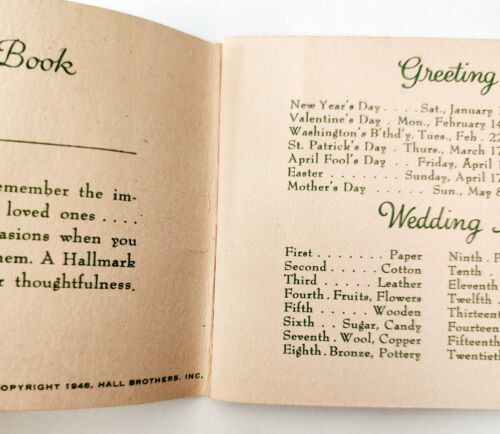 Book
emember the im-
loved ones ....
asions when you
em. A Hallmark
r thoughtfulness.
OPYRIGHT 1948, HALL BROTHERS, INC.
Greeting
New Year's Day . . . . Sat., January 1
Valentine's Day . Mon., February 14
Washington's B'thd'y. Tues., Feb. 22
St. Patrick's Day . Thurs., March 17
April Fool's Day . . Friday, April 1
Easter . . . . . . Sunday, April 17
Mother's Day . . . . Sun., May 8
Wedding
First . . . . . . . Paper
Second . . . . . Cotton
Third . . . . . Leather
Fourth. Fruits, Flowers
Fifth . . . . . Wooden
Sixth . . Sugar, Candy
Seventh. Wool, Copper
Eighth. Bronze, Pottery
Ninth . P
Tenth .
Eleventh
Twelfth .
Thirteent
Fourteen
Fifteenth
Twentiet